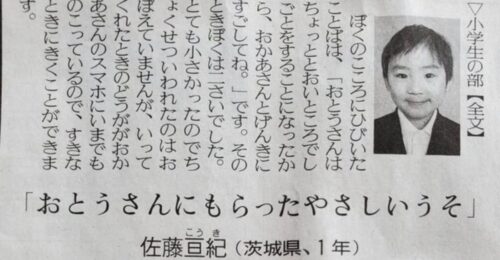 ▽小学生の部【全文】
ぼくのこころにひびいた
ことばは、「おとうさんは
ちょっととおいところでし
ごとをすることになったか
ら、おかあさんとげんきに
すごしてね。」です。その
ときぼくは二さいでした。
とても小さかったのでち
ょくせついわれたのはお
ぼえていませんが、いって
くれたときのどうががおか
あさんのスマホにいまでも
のこっているので、すきな
ときにきくことができま
「おとうさんにもらったやさしいうそ」
こうき
佐藤亘紀(茨城県、1年)